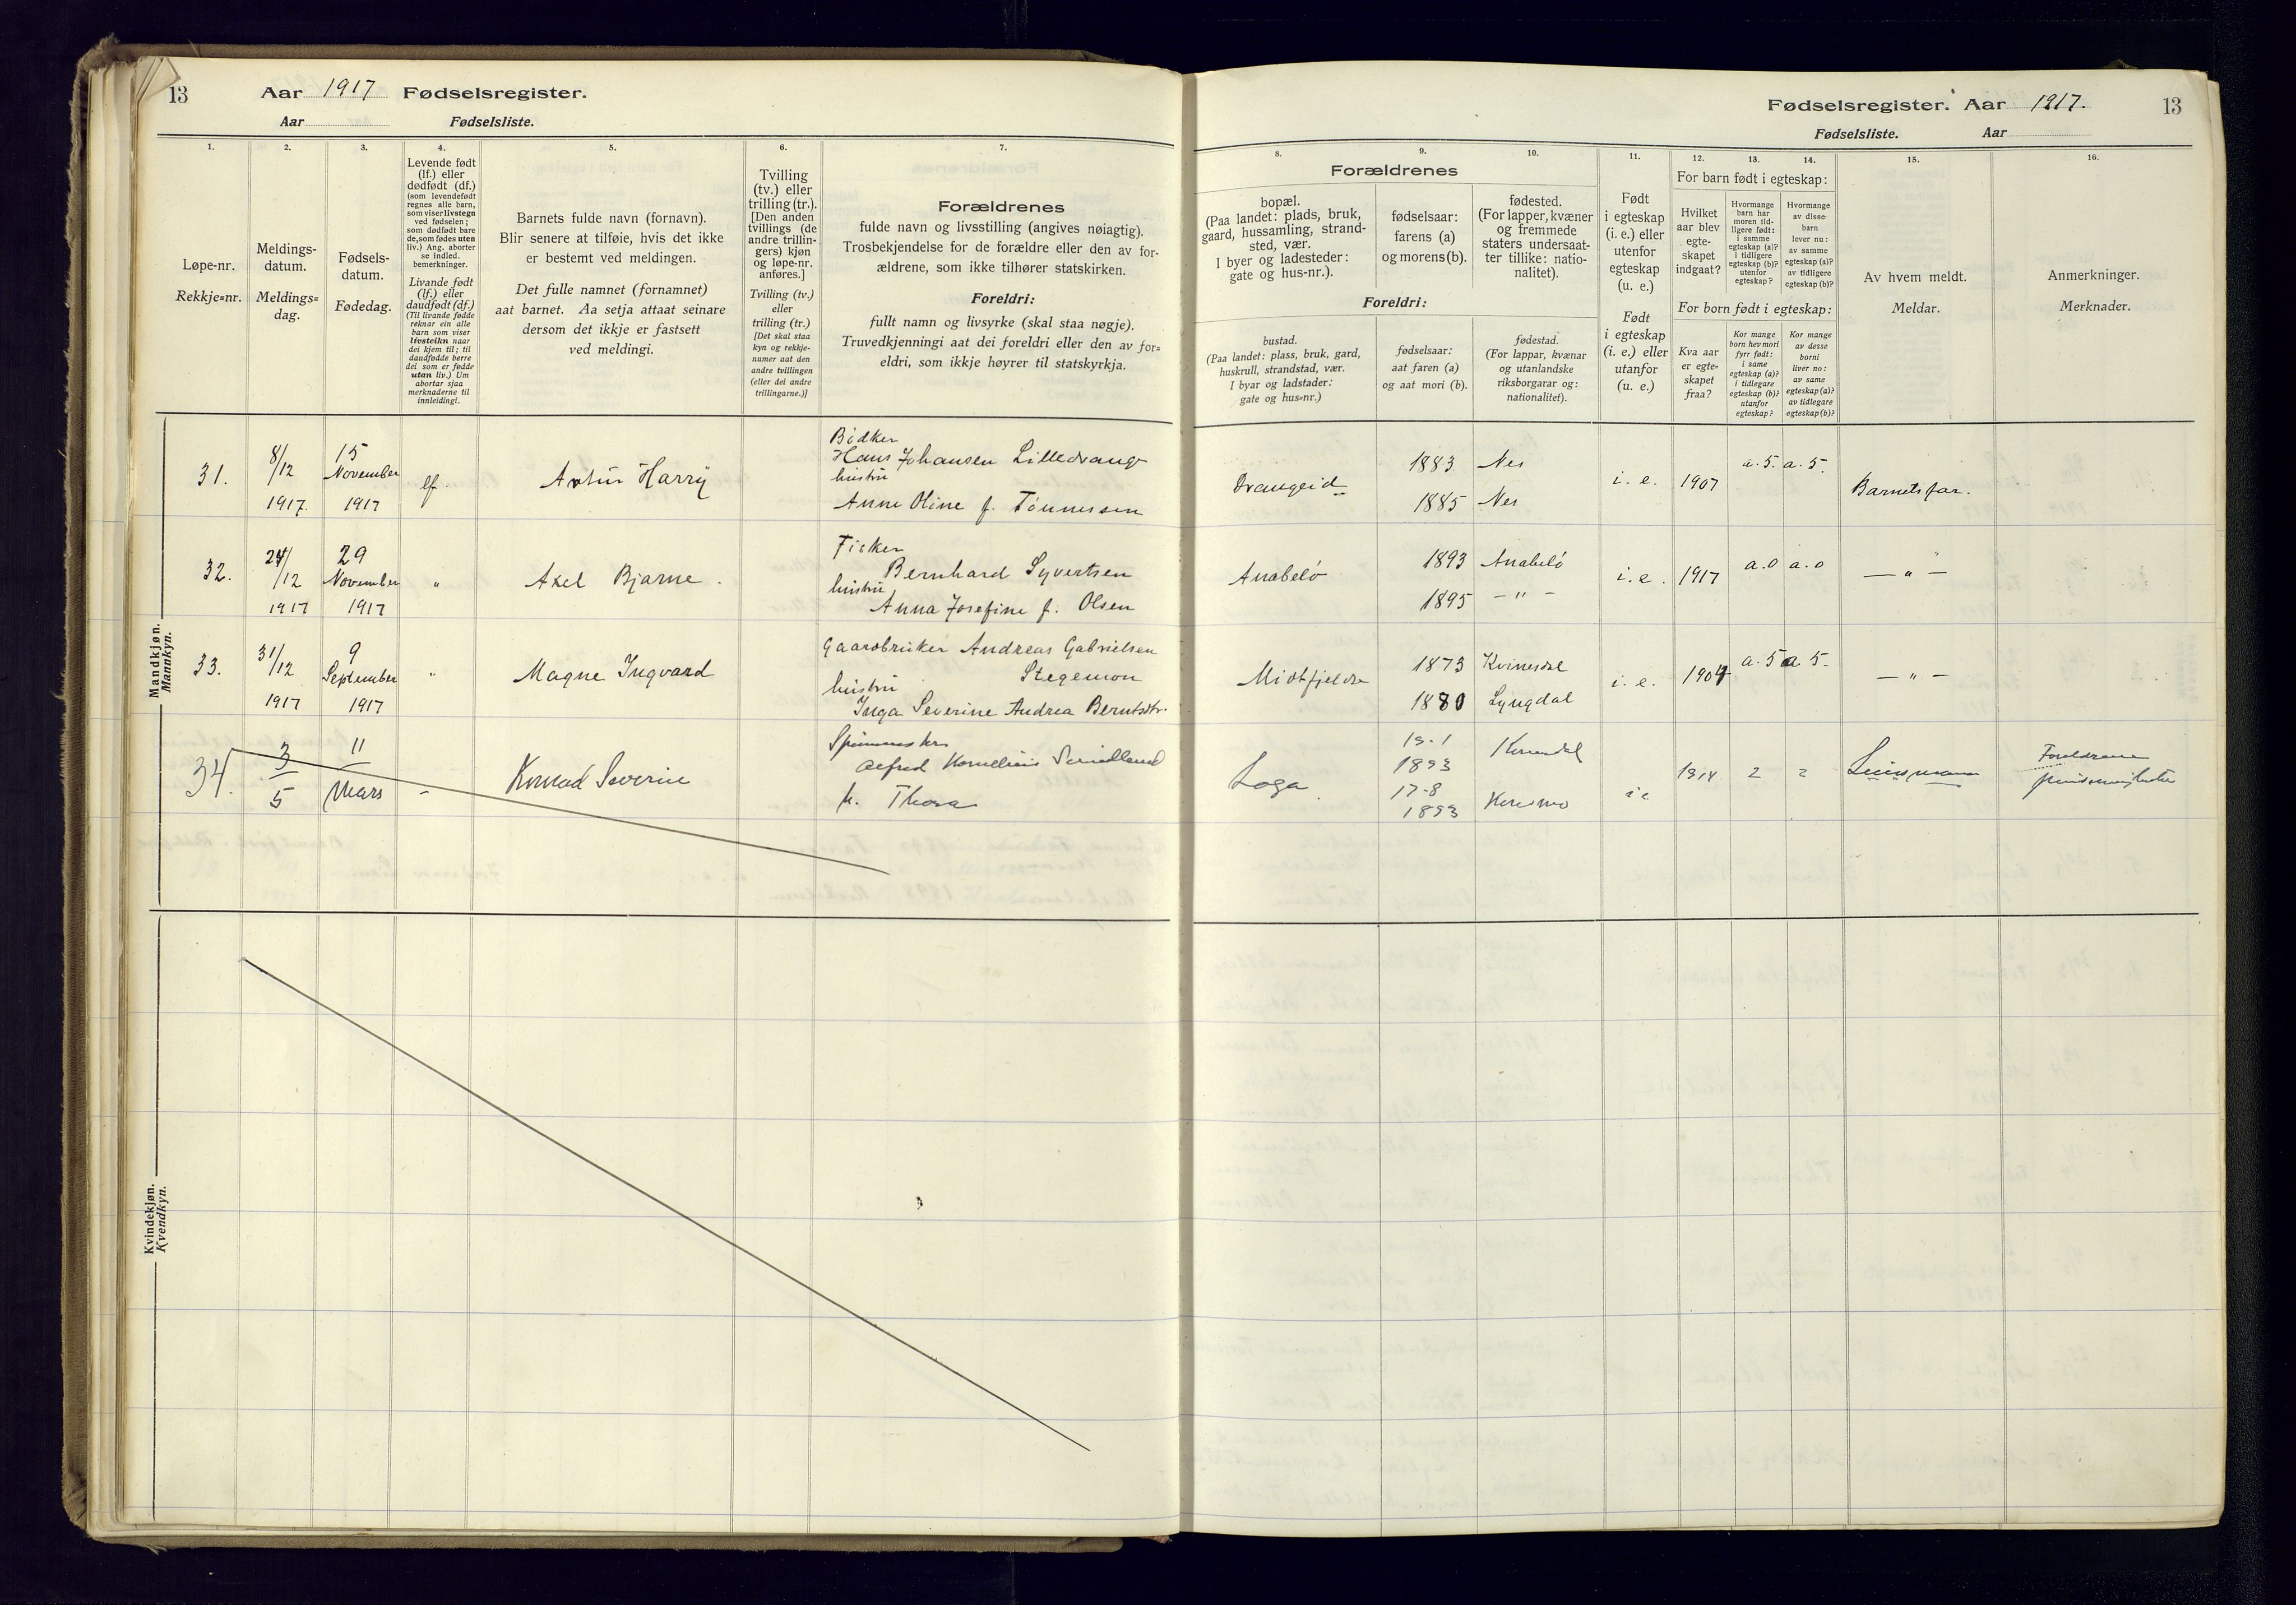 13 Aar 1917 Fødselsregister.
Aar Fødselsliste.
1.
Løpe-nr.
Rekkje=nr.
2.
Meldings-
datum.
Meldings=
dag.
3.
Fødsels-
datum.
Fødedag.
4.
Levende født
(lf.) eller
dødfødt (df.)
(som levendefødt
regnes alle barn,
som viser livstegn
ved fødselen;
som dødfødt bare
de, som fødes uten
liv.) Ang. aborter
se indled.
bemerkninger.
Livande født
(lf.) eller
daudfødt (df.)
(Til livande fødde
reknar ein alle
barn som viser
livsteikn naar
dei kjem til; til
daudfødde berre
dei som er fødde
utan liv.) Um
abortar sjaa
merknaderne til
innleidingi.
5.
Barnets fulde navn (fornavn).
Blir senere at tilføie, hvis det ikke
er bestemt ved meldingen.
Det fulle namnet (fornamnet)
aat barnet. Aa setja attaat seinare
dersom det ikkje er fastsett
ved meldingi.
6.
Tvilling
(tv.) eller
trilling (tr.).
[Den anden
tvillings (de
andre trillin-
gers) kjøn
og løpe-nr.
anføres.]
Tvilling (tv.)
eller
trilling (tr.)
[Det skal staa
kyn og rekkje-
numer aat den
andre tvillingen
(eller dei andre
trillingarne.)]
7.
Forældrenes
fulde navn og livsstilling (angives nøiagtig).
Trosbekjendelse for de forældre eller den av for-
ældrene, som ikke tilhører statskirken.
Foreldri:
fullt namn og livsyrke (skal staa nøgje).
Truvedkjenningi aat dei foreldri eller den av for=
eldri, som ikkje høyrer til statskyrkja.
Mandkjøn.
Mannkyn.
31.
8/12
1917.
15
November
1917
lf.
Artur Harry
Bødker
Hans Johansen Lilledrange
hustru
Anne Oline f. Tønnessen
32.
24/12
1917
29
November
1917
"
Axel Bjarne.
Fisker
Bernhard Syvertsen
hustru
Anna Josefine f. Olsen
33.
31/12
1917
9
September
1917
"
Magne Ingvard
Gaardbruker Andreas Gabrielsen
Stegemon
hustru
Inga Severine Andrea Berntsdtr.
34.
3
5
11
Mars
Konrad Severin
Alfred Kornelius
h. Thora
Kvindekjøn.
Kvendkyn.
Fødselsregister. Aar 1917. 13
Fødselsliste. Aar
Forældrenes
8.
bopæl.
(Paa landet: plads, bruk,
gaard, hussamling, strand-
sted, vær.
I byer og ladesteder:
gate og hus-nr.).
9.
fødselsaar:
farens (a)
og morens (b).
10.
fødested.
(For lapper, kvæner
og fremmede
staters undersaat-
ter tillike: natio-
nalitet).
Foreldri:
bustad.
(Paa landet: plass, bruk, gard,
huskrull, strandstad, vær.
I byar og ladstader:
gate og hus=nr.)
fødselsaar:
aat faren (a)
og aat mori (b).
fødestad.
(For lappar, kvænar
og utanlandske
riksborgarar og:
nationalitet).
11.
Født
i egteskap
(i. e.) eller
utenfor
egteskap
(u. e.)
Født
i egteskap
(i. e.) eller
utanfor
(u. e.)
12. 13. 14.
For barn født i egteskap:
Hvilket
aar blev
egte-
skapet
indgaat?
Hvormange
barn har
moren tid-
ligere født:
i samme
egteskap (a)?
i tidligere
egteskap (b)?
utenfor
egteskap?
Hvormange
av disse
barn
lever nu:
av samme
egteskap (a)?
av tidligere
egteskap (b)?
For born født i egteskap:
Kva aar
er egte=
skapet
fraa?
Kor mange
born hev mori
fyrr født:
i same
egteskap (a)?
i tidlegare
egteskap (b)?
utanfor
egteskap?
Kor mange
av desse
borni
liver no:
av same
egteskap (a)?
av tidlegare
egteskap (b)?
15.
Av hvem meldt.
Meldar.
16.
Anmerkninger.
Merknader.
Drangeid
1883 Nes
1885 Nes
i. e. 1907 a. 5. a. 5.
Barnets far.
Anabelø
1893 Anabelø
1895 — " —
i. e. 1917 a. 0 a. 0
— " —
Midtfjeldre
1873 Kvinesdal
1880 Lyngdal
i. e. 1904 a. 5 a. 5.
— " —
Loga
19-1
1893
17-8
1893
i e
1914 2 2
Lensmann
Foreldrene